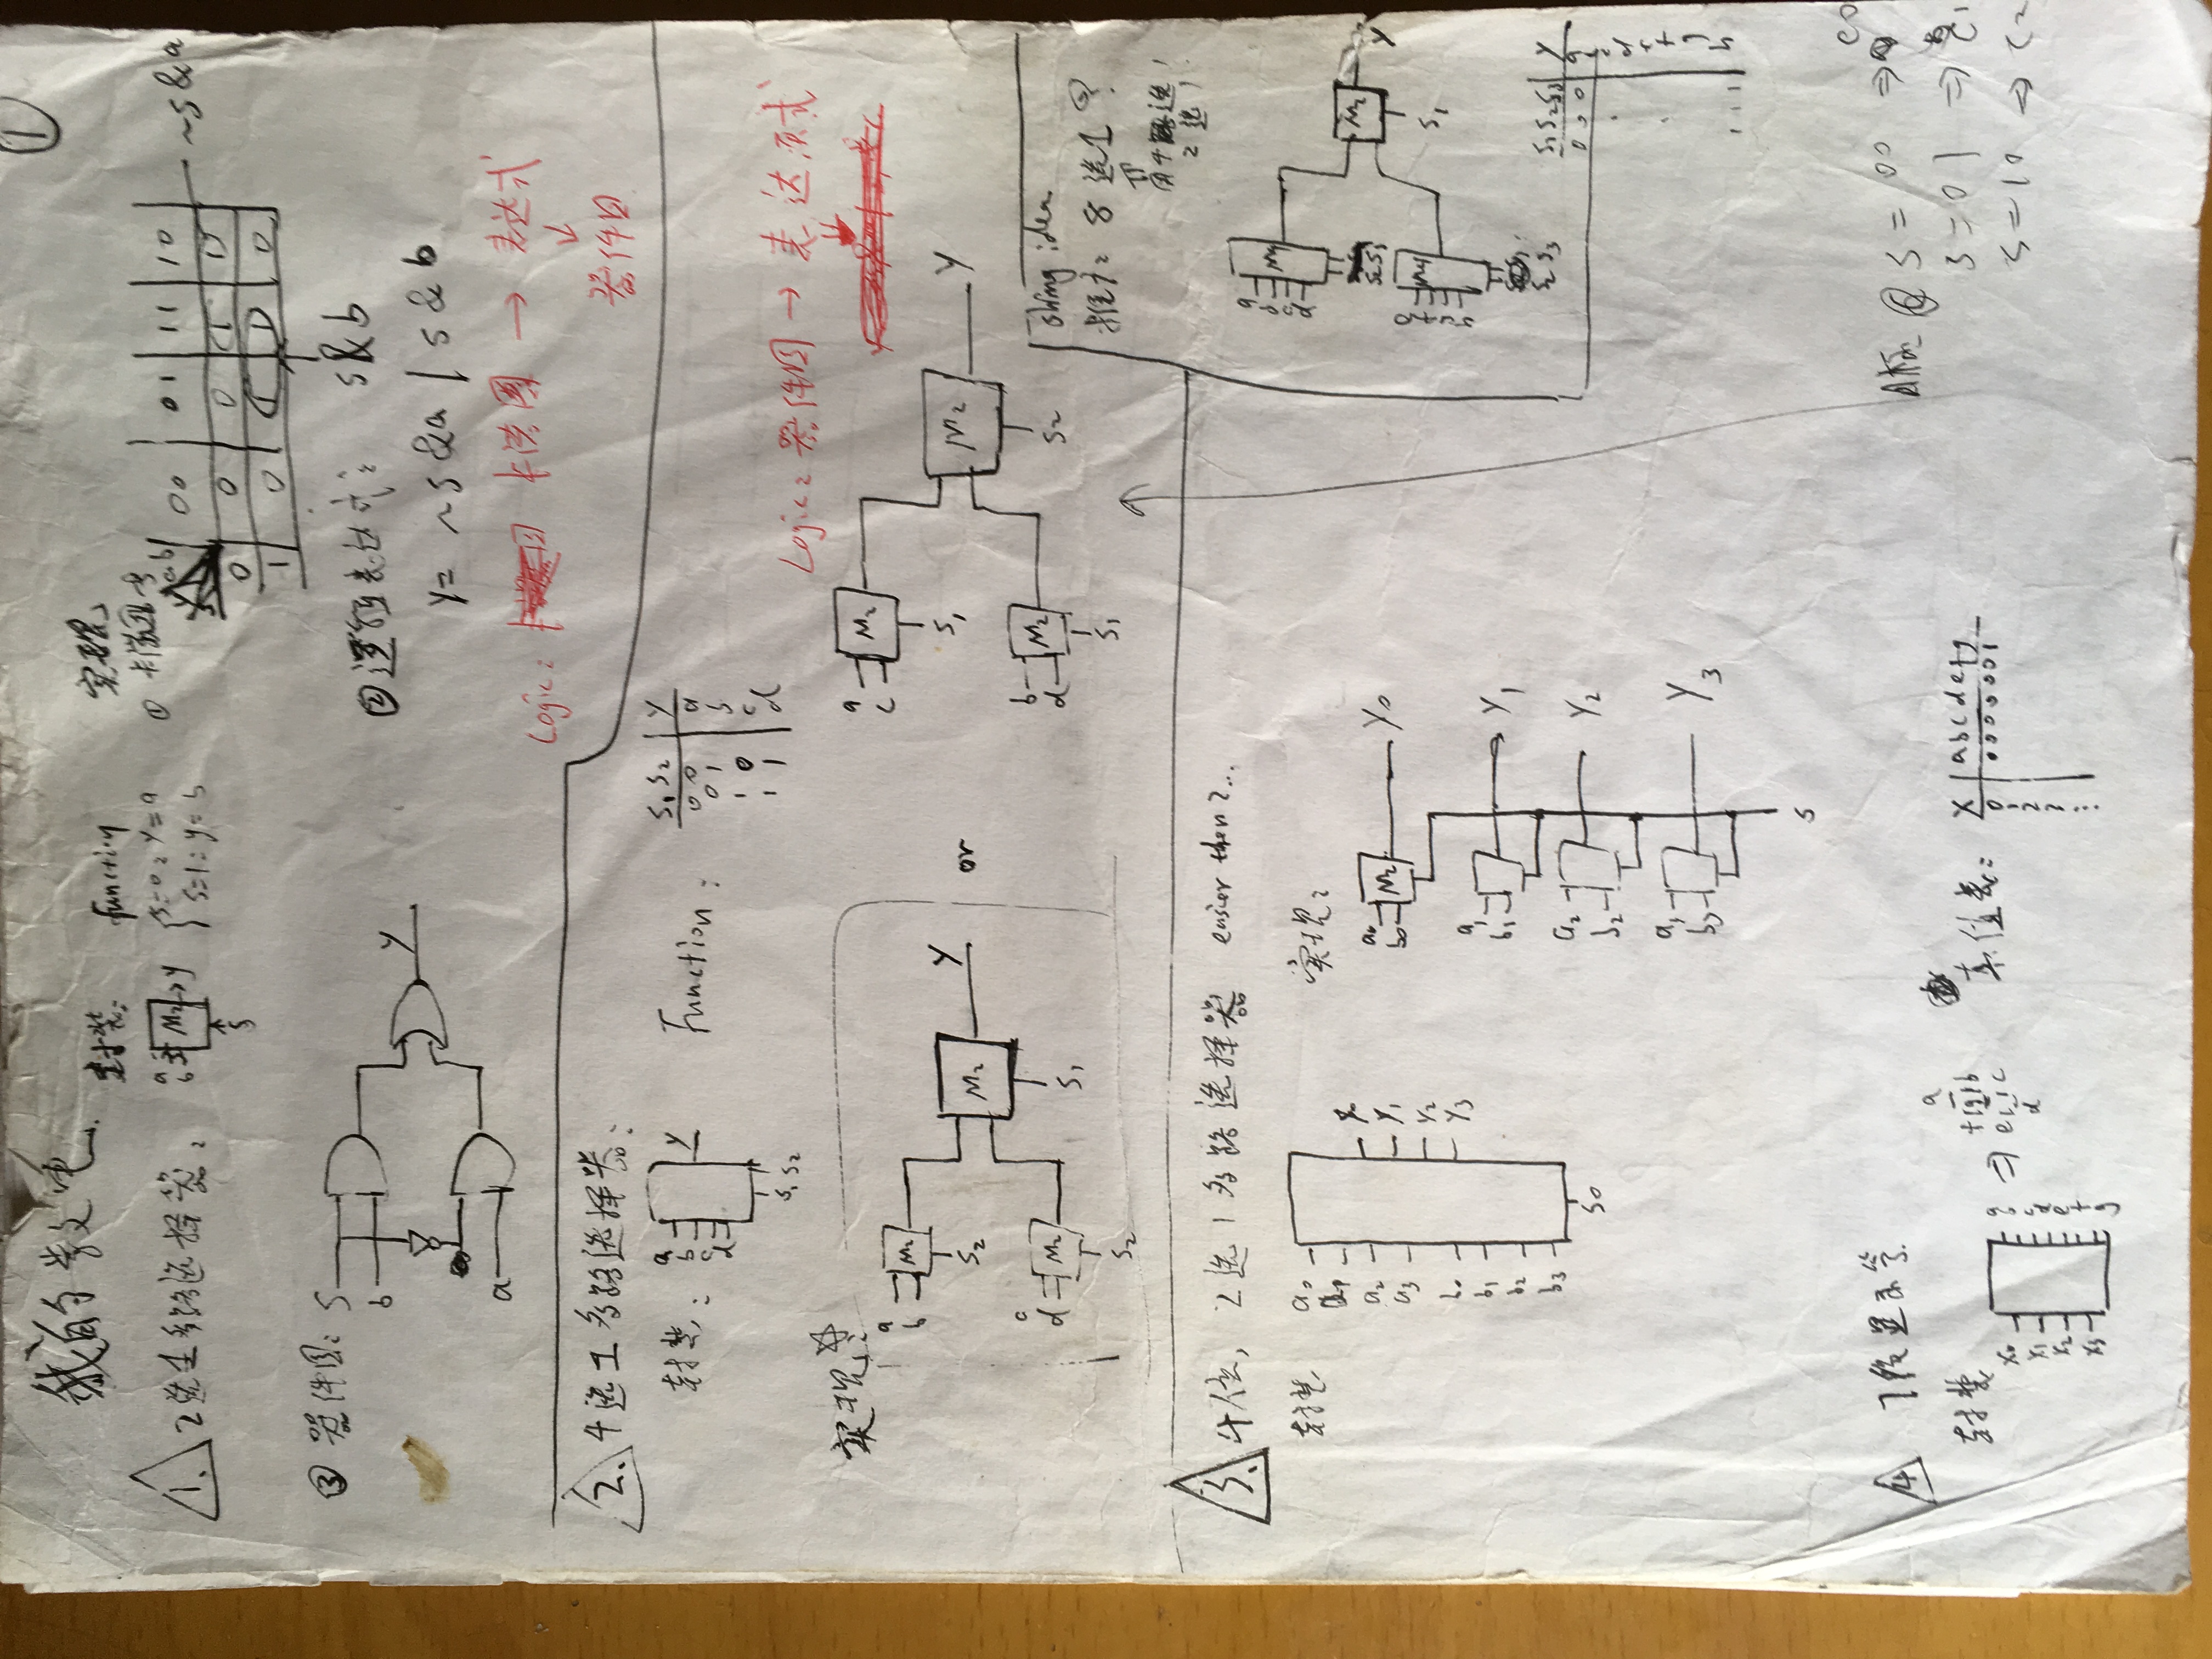 ①
我的数电.
1. 2选1多路选择器:
封装:
a
b
M2
y
s
function
s=0: y=a
s=1: y=b
实现
① 卡诺图
ab 00 01 11 10
0 0 0 1 1
1 0 1 1 0
~s&a
s&b
② 逻辑表达式:
y= ~s&a | s&b
③ 器件图:
s
b
a
y
Logic: 卡诺图 → 表达式
↓
器件图
2. 4选1多路选择器:
封装:
a
b
c
d
y
s1 s2
Function:
s1 s2 y
0 0 a
0 1 b
1 0 c
1 1 d
Logic: 器件图 → 表达式
实现:
a
b
M2
s2
c
d
M2
s2
M2
s1
y
or
a
c
M2
s1
b
d
M2
s1
M2
s2
y
idea
推广: 8选1?
用4选1
2选1
a
b
c
d
M4
s2 s3
M4
s2 s3
M2
s1
y
s1 s2 s3 y
0 0 0 a
1 1 1
3. 4位, 2选1多路选择器 easier then 2...
封装
a0
a1
a2
a3
b0
b1
b2
b3
y0
y1
y2
y3
s0
实现:
a0
b0
M2
y0
a1
b1
y1
a2
b2
y2
b3
y3
s
4 7段显示
封装
x0
x1
x2
x3
a
b
c
d
e
f
g
⇒
a
f g b
e c
d
真值表:
x abcdefg
0 0000001
1
2
3
...
s = 00 ⇒ c0
s = 01 ⇒ c1
s = 10 ⇒ c2